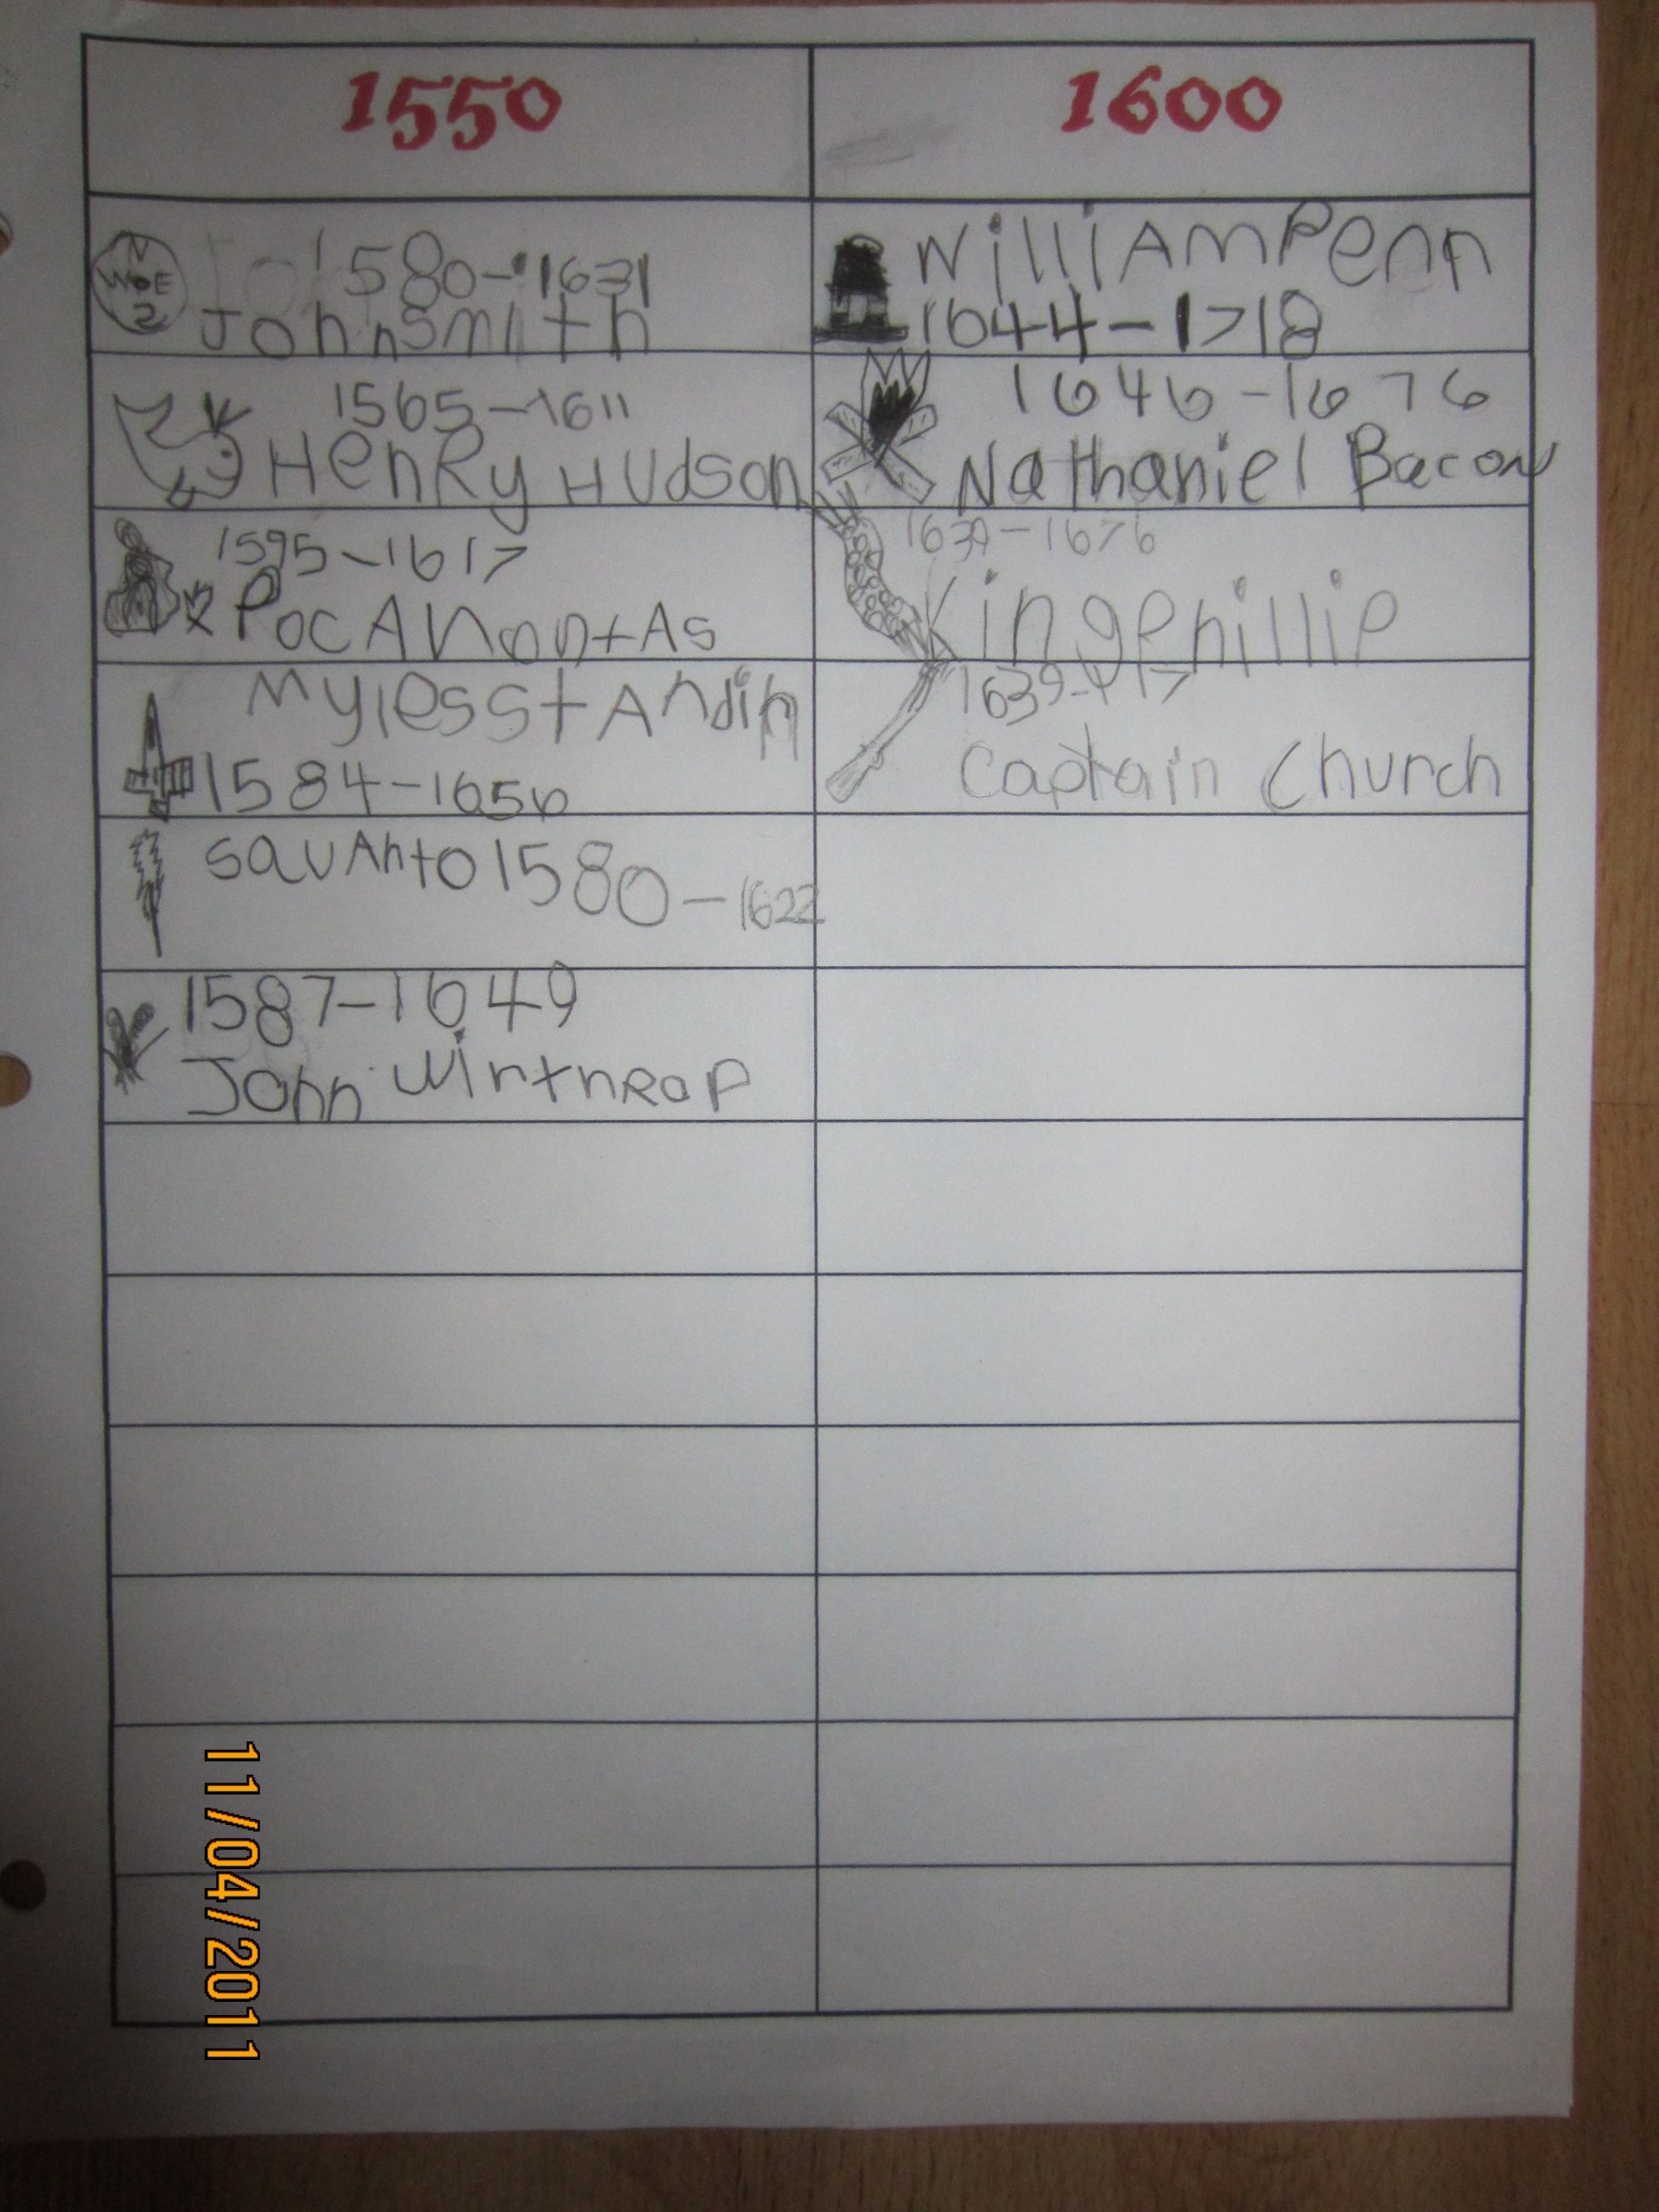 1550
1600
1580-1631
John Smith
William Penn
1644-1718
1565-1611
Henry Hudson
1646-1676
Nathaniel Bacon
1595-1617
PocAhontAs
1639-1676
King Phillip
Myless StAndin
1584-1656
1639-17
Captain Church
SquAnto 1580-1622
1587-1649
John WinthRop
N
W E
S
11/04/2011